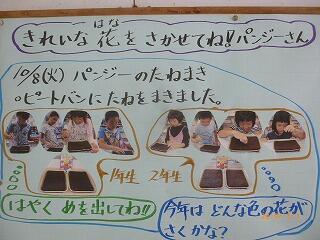 はな
きれいな花をさかせてね!!パンジーさん
10/8(火) パンジーのたねまき
○ピートバンにたねをまきました。
1年生 2年生
はやく めを出してね!!
今年は どんな色の花が
さくかな?